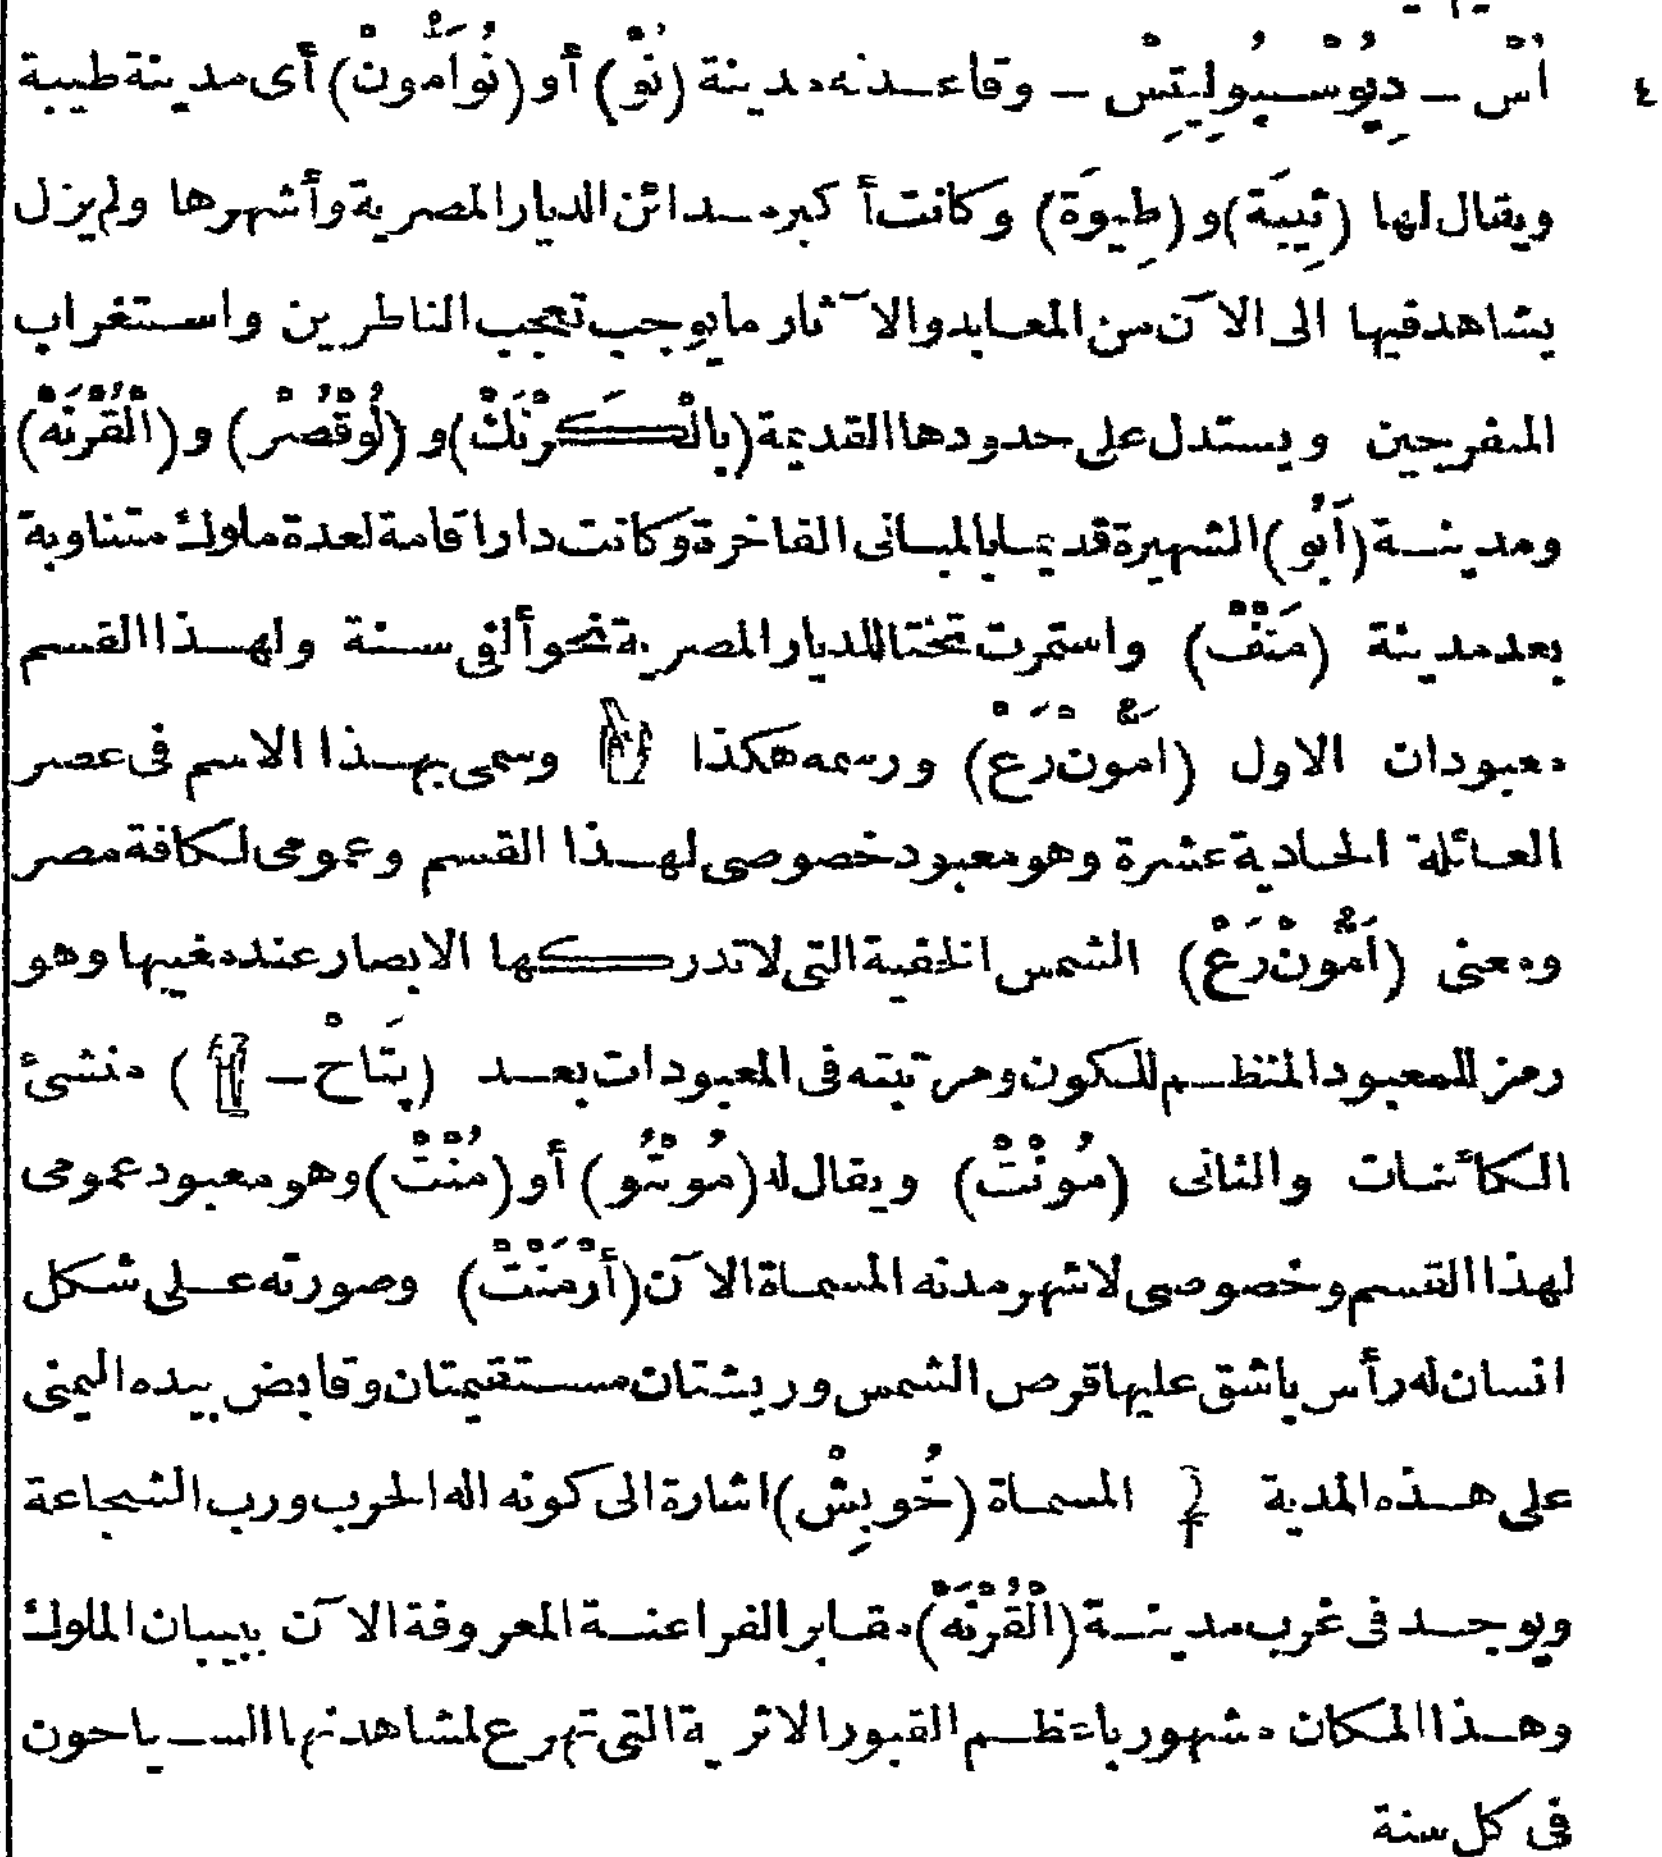 ٤ اُسْ ــ دِيُوْسْبُولِيتِسْ ــ وقاعدته مدينة (نُوْ) أو (نُوأَمُّونْ) أى مدينة طيبة
ويقال لها (تِيبَة) و (طِيوَة) وكانت أكبر مدائن الديار المصرية وأشهرها ولم يزل
يشاهد فيها الى الآن من المعابد والآثار ما يوجب تعجب الناظرين واستغراب
المتفرجين ويستدل على حدودها القديمة (بالْكَرْنَكْ) و (لُوقْصُرْ) و (الْقُرْنَهْ)
ومدينة (أَبُو) الشهيرة قديما بالمبانى الفاخرة وكانت دار اقامة لعدة ملوك متناوبة
بعد مدينة (مَنْفْ) واستمرت تختا للديار المصرية نحو ألفى سنة ولهذا القسم
معبودان الاول (أَمُّونْ رَعْ) ورسمه هكذا وسمى بهذا الاسم فى عصر
العائلة الحادية عشرة وهو معبود خصوصى لهذا القسم وعمومى لكافة مصر
ومعنى (أَمُّونْ رَعْ) الشمس الخفية التى لا تدركها الابصار عند مغيبها وهو
رمز للمعبود المنظم للكون ومرتبته فى المعبودات بعد (پَتَاحْ ــ ) منشئ
الكائنات والثانى (مُونْتْ) ويقال له (مُونْتُو) أو (مُنْتْ) وهو معبود عمومى
لهذا القسم وخصوصى لاشهر مدنه المسماة الآن (أَرْمَنْتْ) وصورته على شكل
انسان له رأس باشق عليها قرص الشمس وريشتان مستقيمتان وقابض بيده اليمنى
على هذه المدية المسماة (خُوبِشْ) اشارة الى كونه اله الحرب ورب الشجاعة
ويوجد فى غرب مدينة (الْقُرْنَهْ) مقابر الفراعنة المعروفة الآن ببيبان الملوك
وهذا المكان مشهور باعظم القبور الاثرية التى تهرع لمشاهدتها السياحون
فى كل سنة